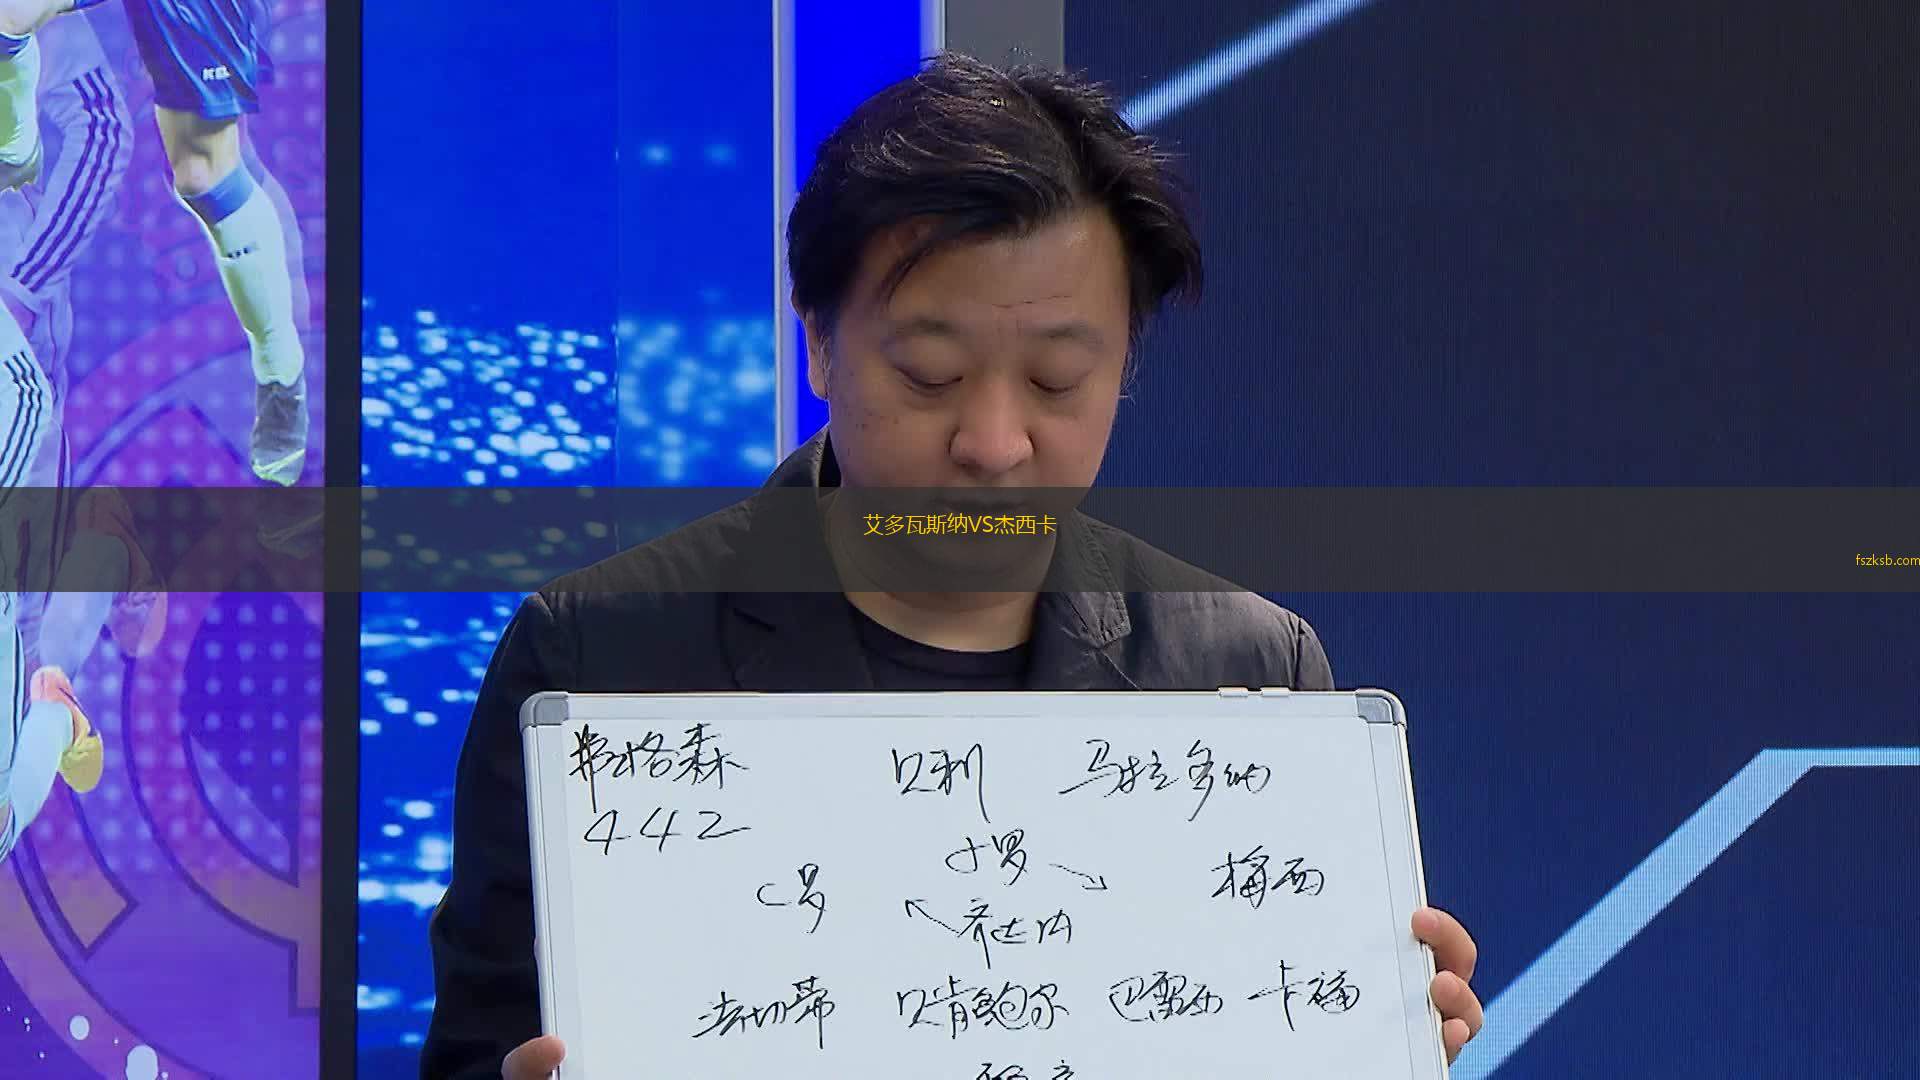 艾多瓦斯纳VS杰西卡
fszksb.com
弗格森 贝利 马拉多纳
442
小罗
C罗 梅西
齐达内
法切蒂 贝肯鲍尔 巴雷西 卡福